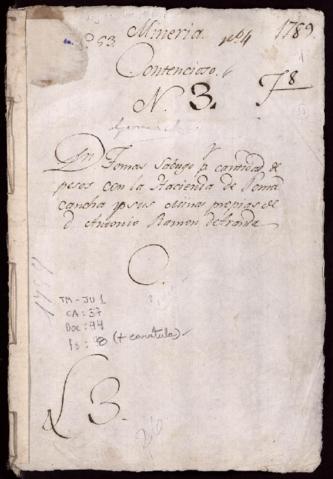 Mineria. nº4 1789
53
Contencioso.
N. 3. F 8
Dn Tomas Sabugo pr cantidad de
pesos con la Hacienda de Poma
cancha y sus minas propias de
d. Antonio Ramon de
C.
1789
TM-JU 1
CA: 37
Doc: 94
fs: 98 (+ caratula)
L 3.